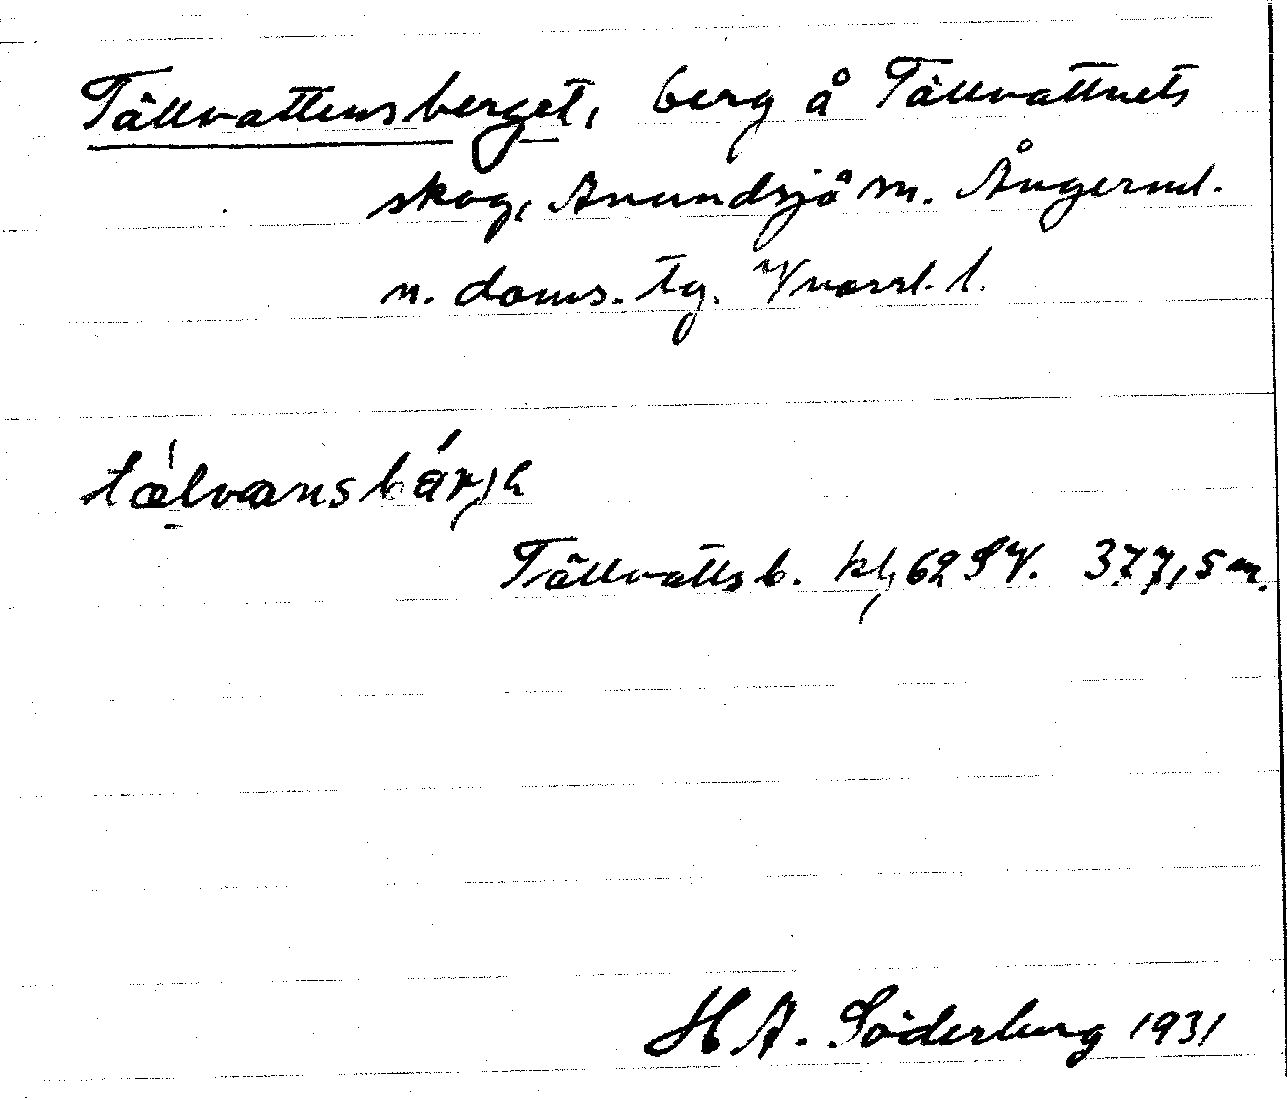 Tällvattensberget, berg å Tällvattnets
skog, Anundsjö sn. Ångerml.
n. doms. tg. Vnorrl. l.
tälvansbárja
Tällvattsb. kbl 62 SV. 377,5 m.
H A. Söderberg 1931